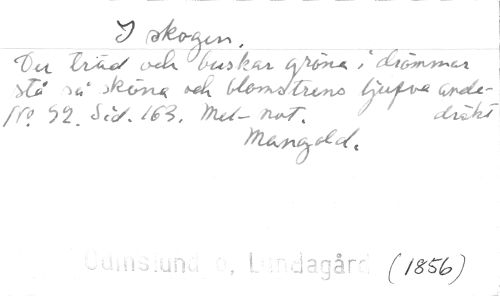 I skogen.
Du träd och buskar gröna i drömmar
stå så sköna och blomstrens ljufva ande-
dräkt
No. 92. Sid. 163. Mel-not.
Mangold.
Odinslund o, Lundagård (1856)